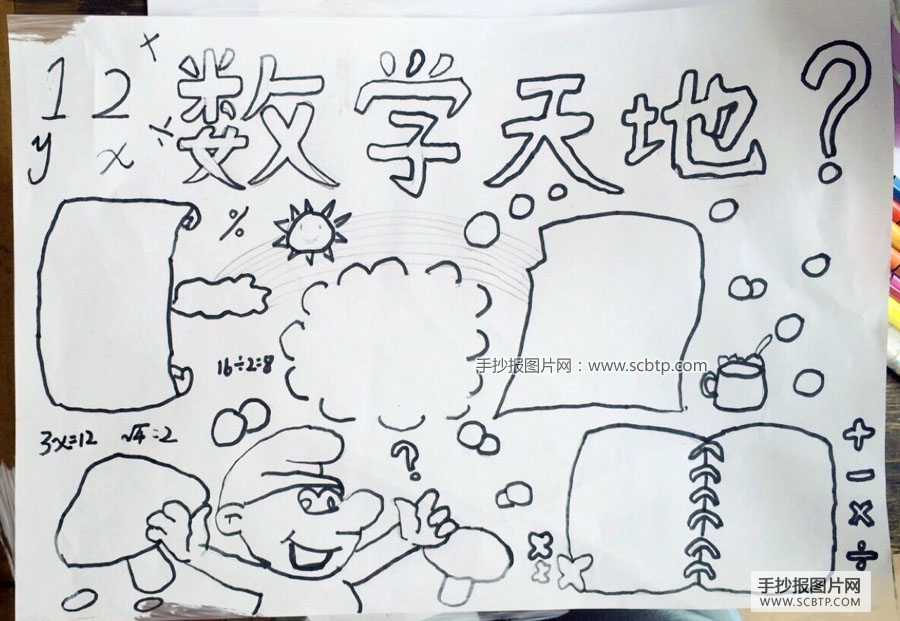 1 2 x
数学天地?
y x ÷
%
16÷2=8
手抄报图片网:www.scbtp.com
3x=12 √4=2
?
+
−
×
÷
× ×
×
手抄报图片网
WWW.SCBTP.COM